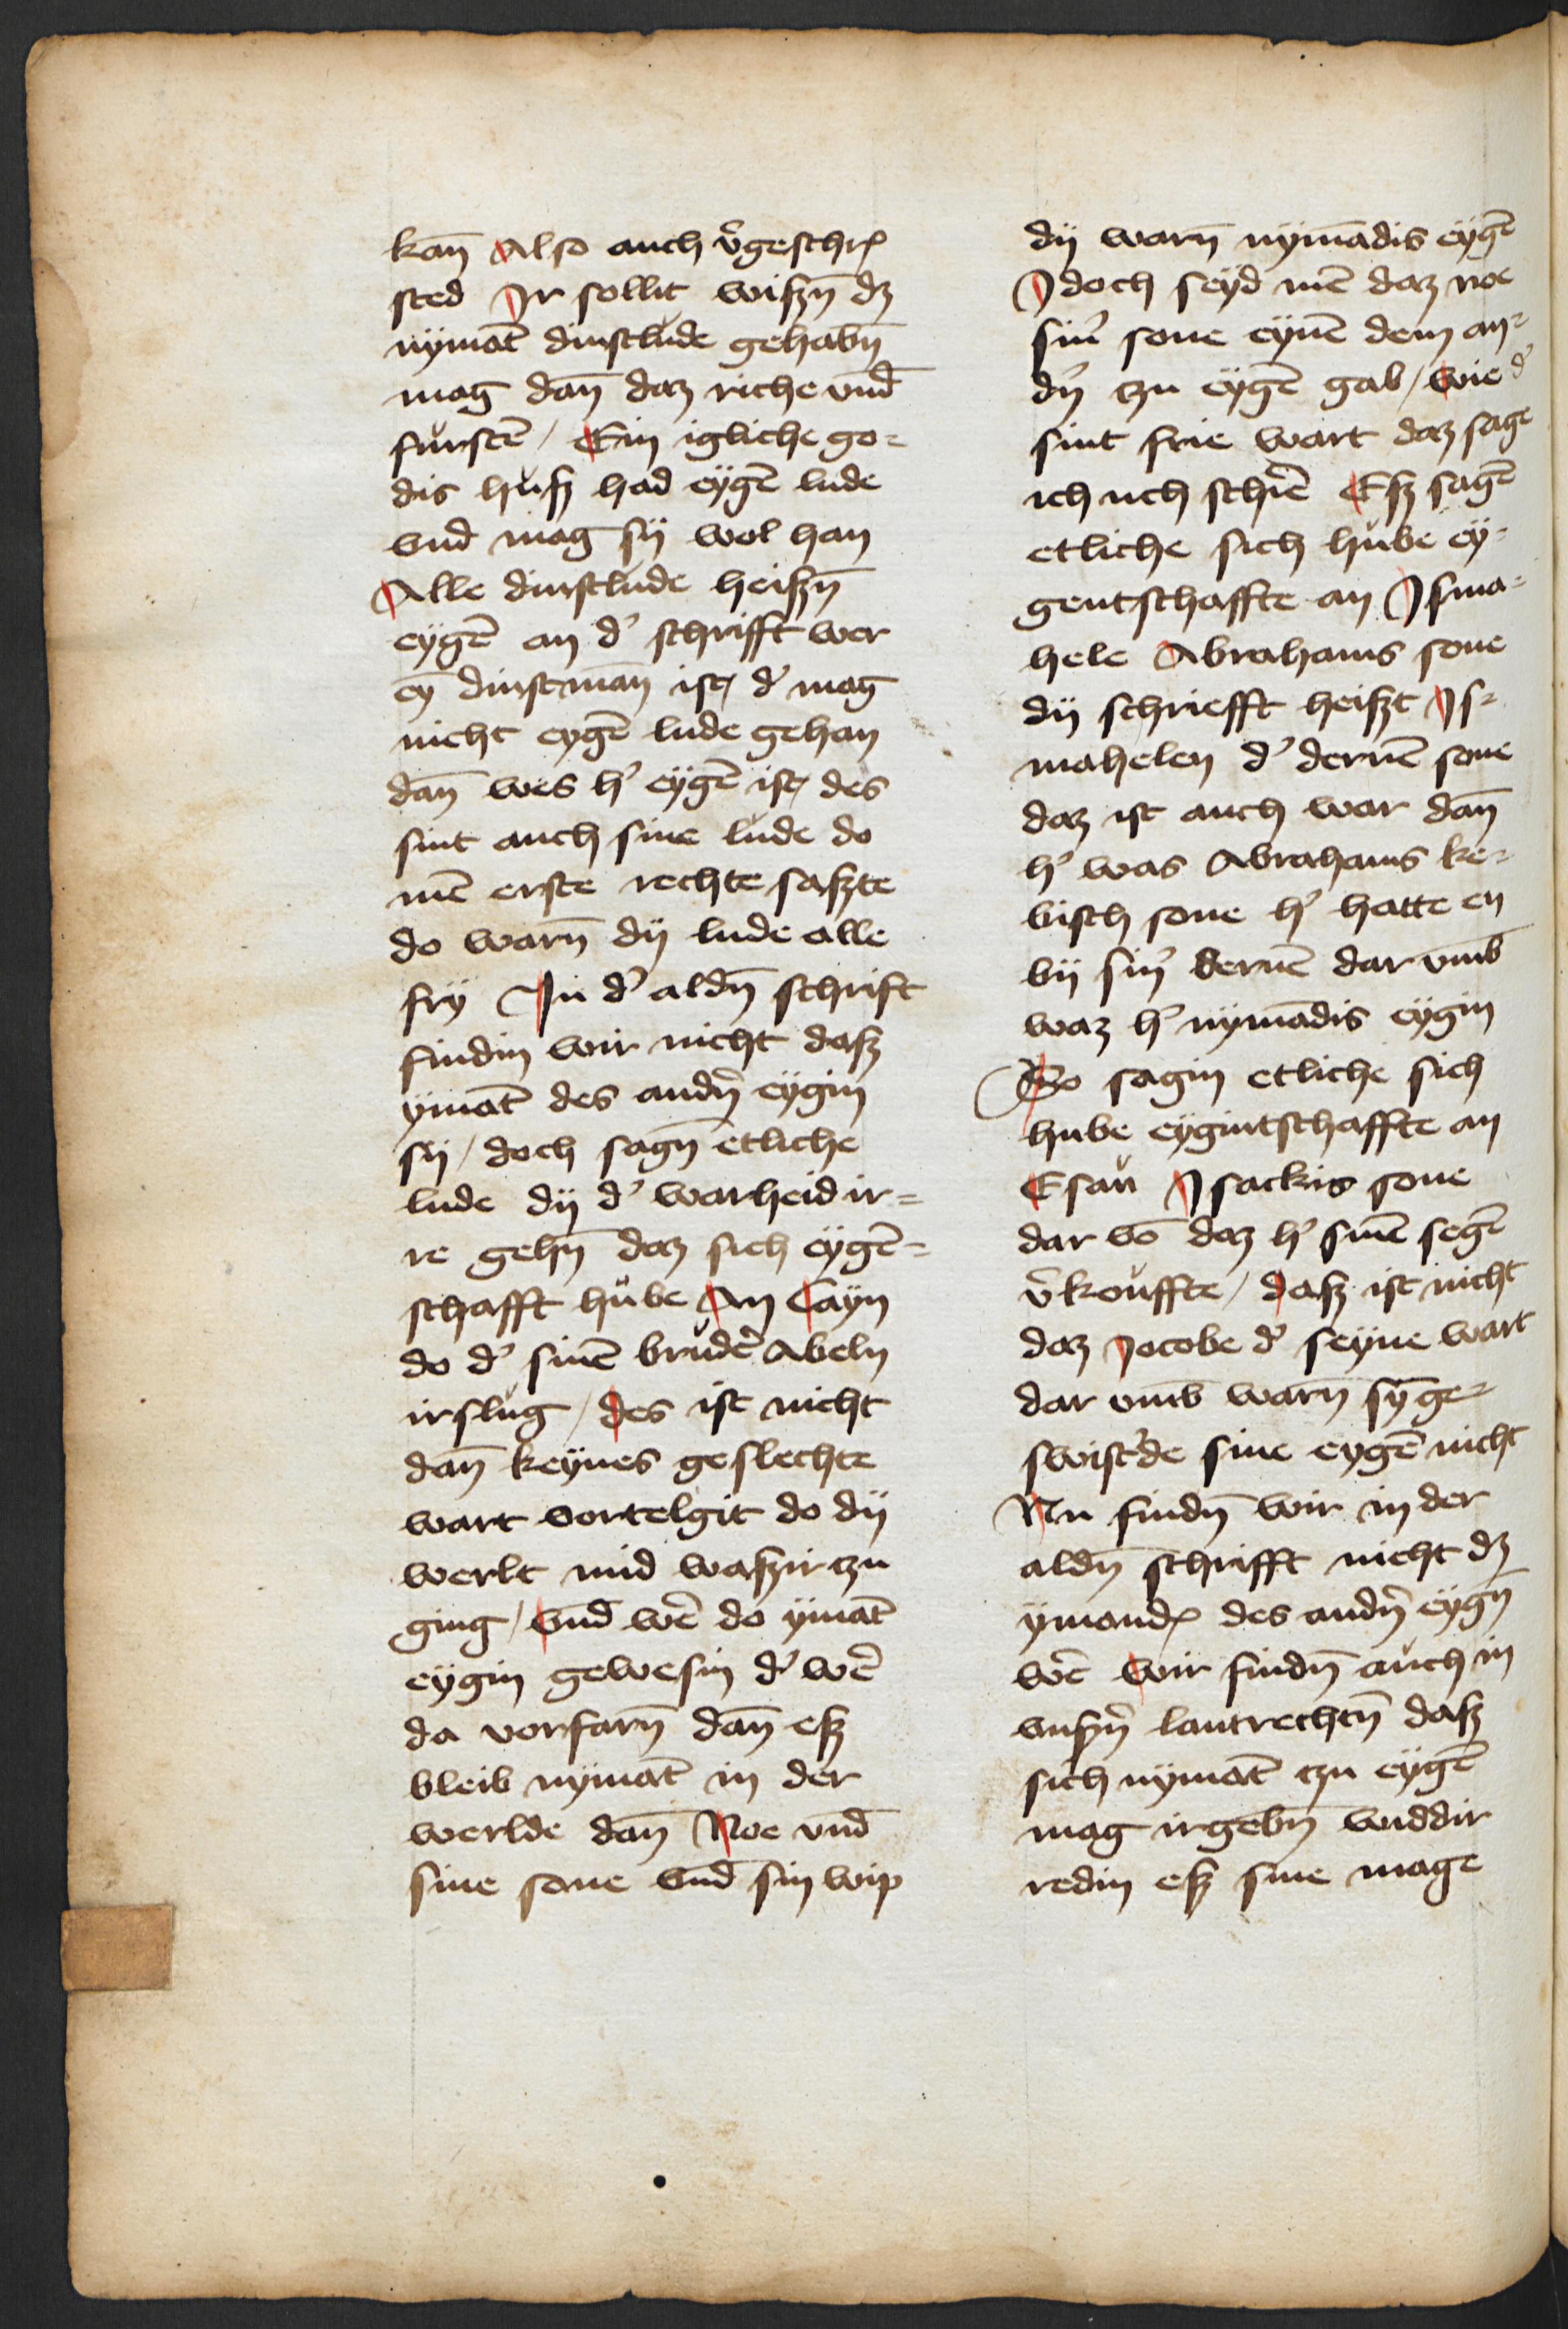 kan̄ Also auch v̄geschrꝭ
sted Ir sollit wiszn̄ dz
nymāt dinstlůde gehabn̄
mag dan̄ daz riche vnd̄
furstē / Ein igliche go=
dis hůsz had eygē lude
vnd mag sij wol han
Alle dinstlůde heiszn̄
eygē an d' schrifft wer
ey dinstman̄ ist d' mag
nicht eygē lude gehan
dan̄ wes h' eygē ist des
sint auch sine lůde do
mē erste rechte saszte
do warn̄ dij lude alle
frij In d' aldn̄ schrift
findin wir nicht dasz
ymāt des andn̄ eygin
sij / doch sagn̄ etliche
lude dij d' warheid ir=
re gehn̄ daz sich eygē=
schafft hůbe An Cayn
do d' sinē brudē abeln
irslůg / des ist nicht
dan̄ keynes geslechte
wart vortelgit do dij
werlt mid waszir tzu
ging / vnd̄ wē do ymāt
eygin gewesin d' wē
da vorfarn̄ dan̄ esz
bleib nymāt in der
werlde dan̄ Noe vnd̄
sine sone vnd̄ sin wip
dij warn̄ nymādis eygē
Idoch seyd mē daz noe
sin' sone eynē dem an=
dn̄ tzu eygē gab / wie d'
sint frie wart daz sage
ich uch schirē Esz sagē
etliche sich hůbe ey=
gentschaffte an Isma=
hele Abrahams sone
dij schriefft heiszt Is=
mahelen d' dernē sone
daz ist auch war dan̄
h' was Abrahams ke=
bisch sone h' hatte en
bij sin' dernē dar vmb̄
waz h' nymādis eygin
So sagin etliche sich
hube eygintschaffte an
Esau Isackis sone
dar vō daz h' sinē segē
v̄kouffte / dasz ist nicht
daz Jacobe d' seyne wart
dar vmb̄ warn̄ sy̅ ge=
swist'de sine eygē nicht
Nu findn̄ wir in der
aldn̄ schrifft nicht dz
ymandꝭ des andn̄ eygn̄
wē wir findn̄ auch in
vnszn̄ lantrechtn̄ dasz
sich nymāt tzu eygē
mag irgebn̄ wuddir
redin esz sine mage